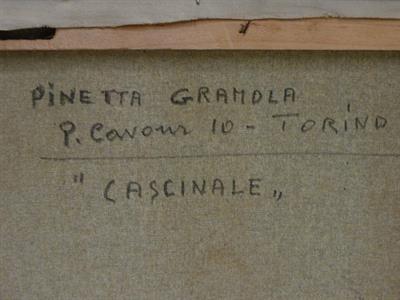 PINETTA GRAMOLA
P. Cavour 10 - TORINO
" CASCINALE „